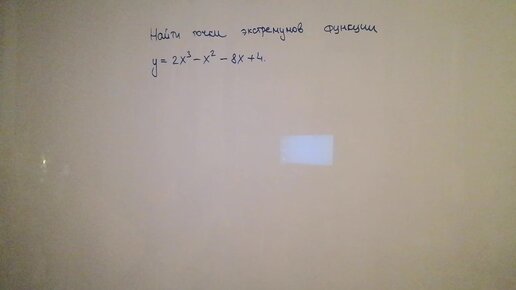 Найти точки экстремумов функции
y = 2x³ - x² - 8x + 4.